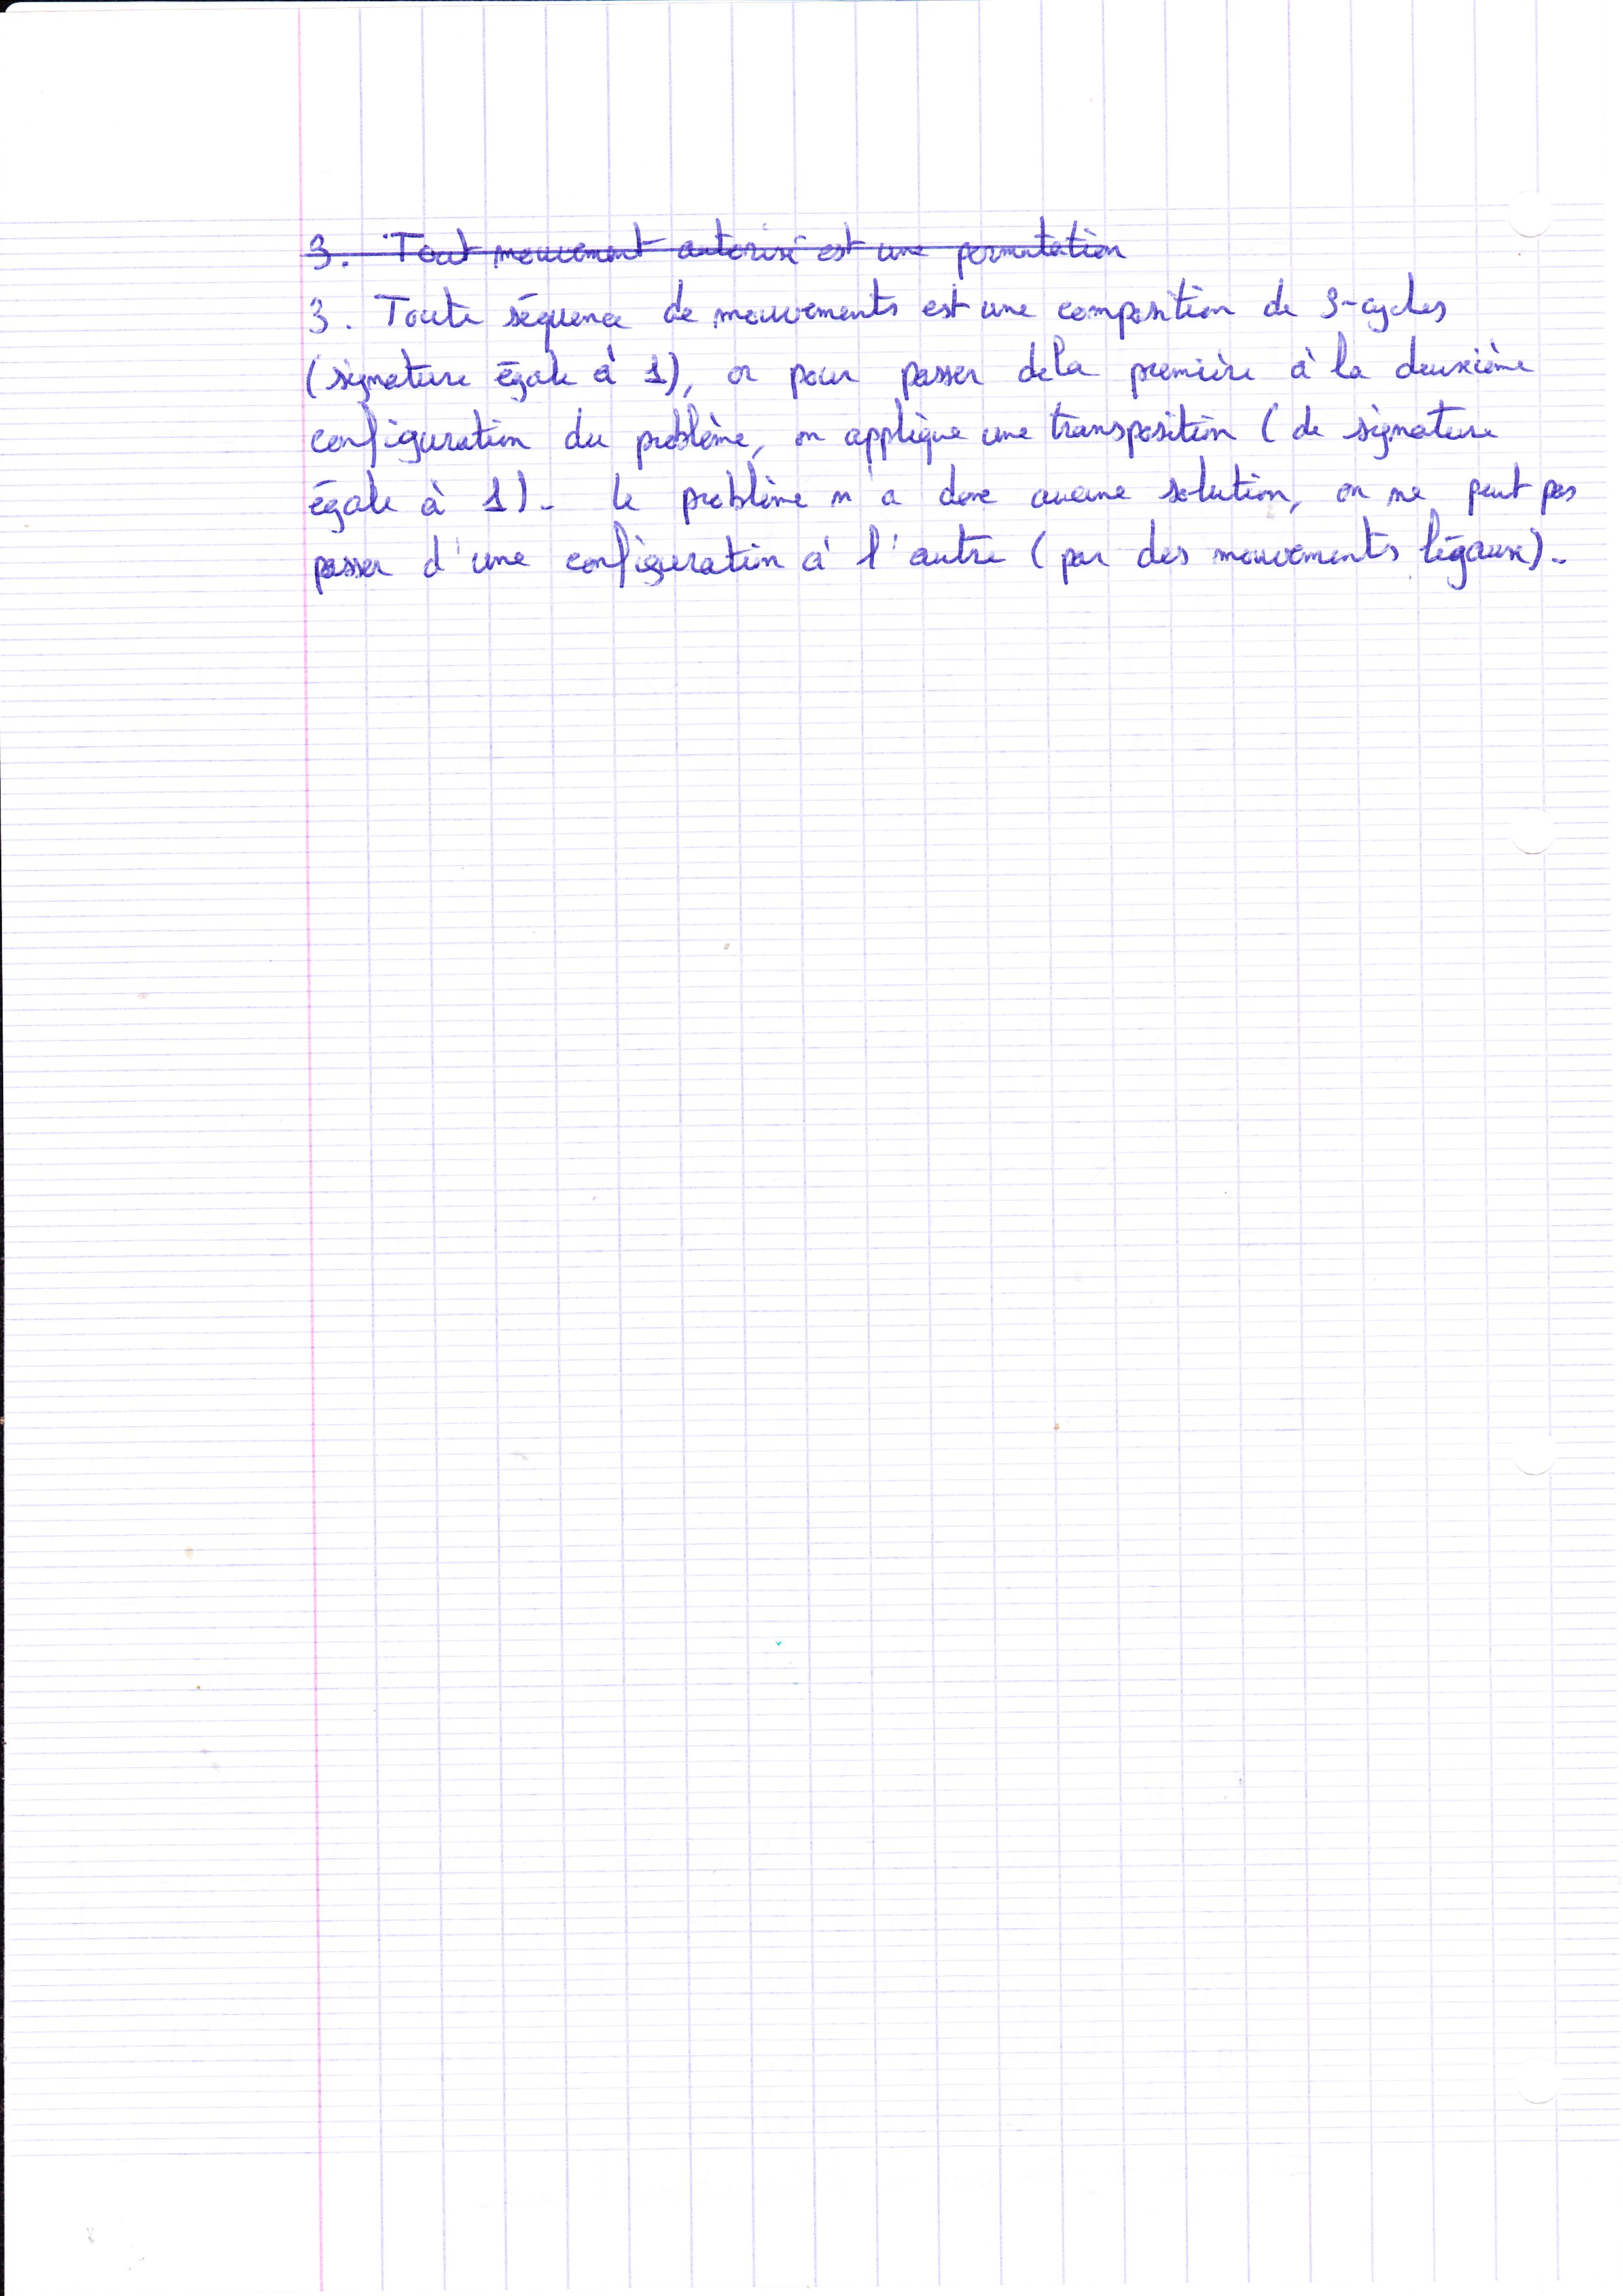 3. Tout mouvement autorisé est une permutation
3. Toute séquence de mouvements est une composition de 3-cycles
(signature égale à 1), or pour passer de la première à la deuxième
configuration du problème, on applique une transposition (de signature
égale à 1). Le problème n'a donc aucune solution, on ne peut pas
passer d'une configuration à l'autre (par des mouvements légaux).